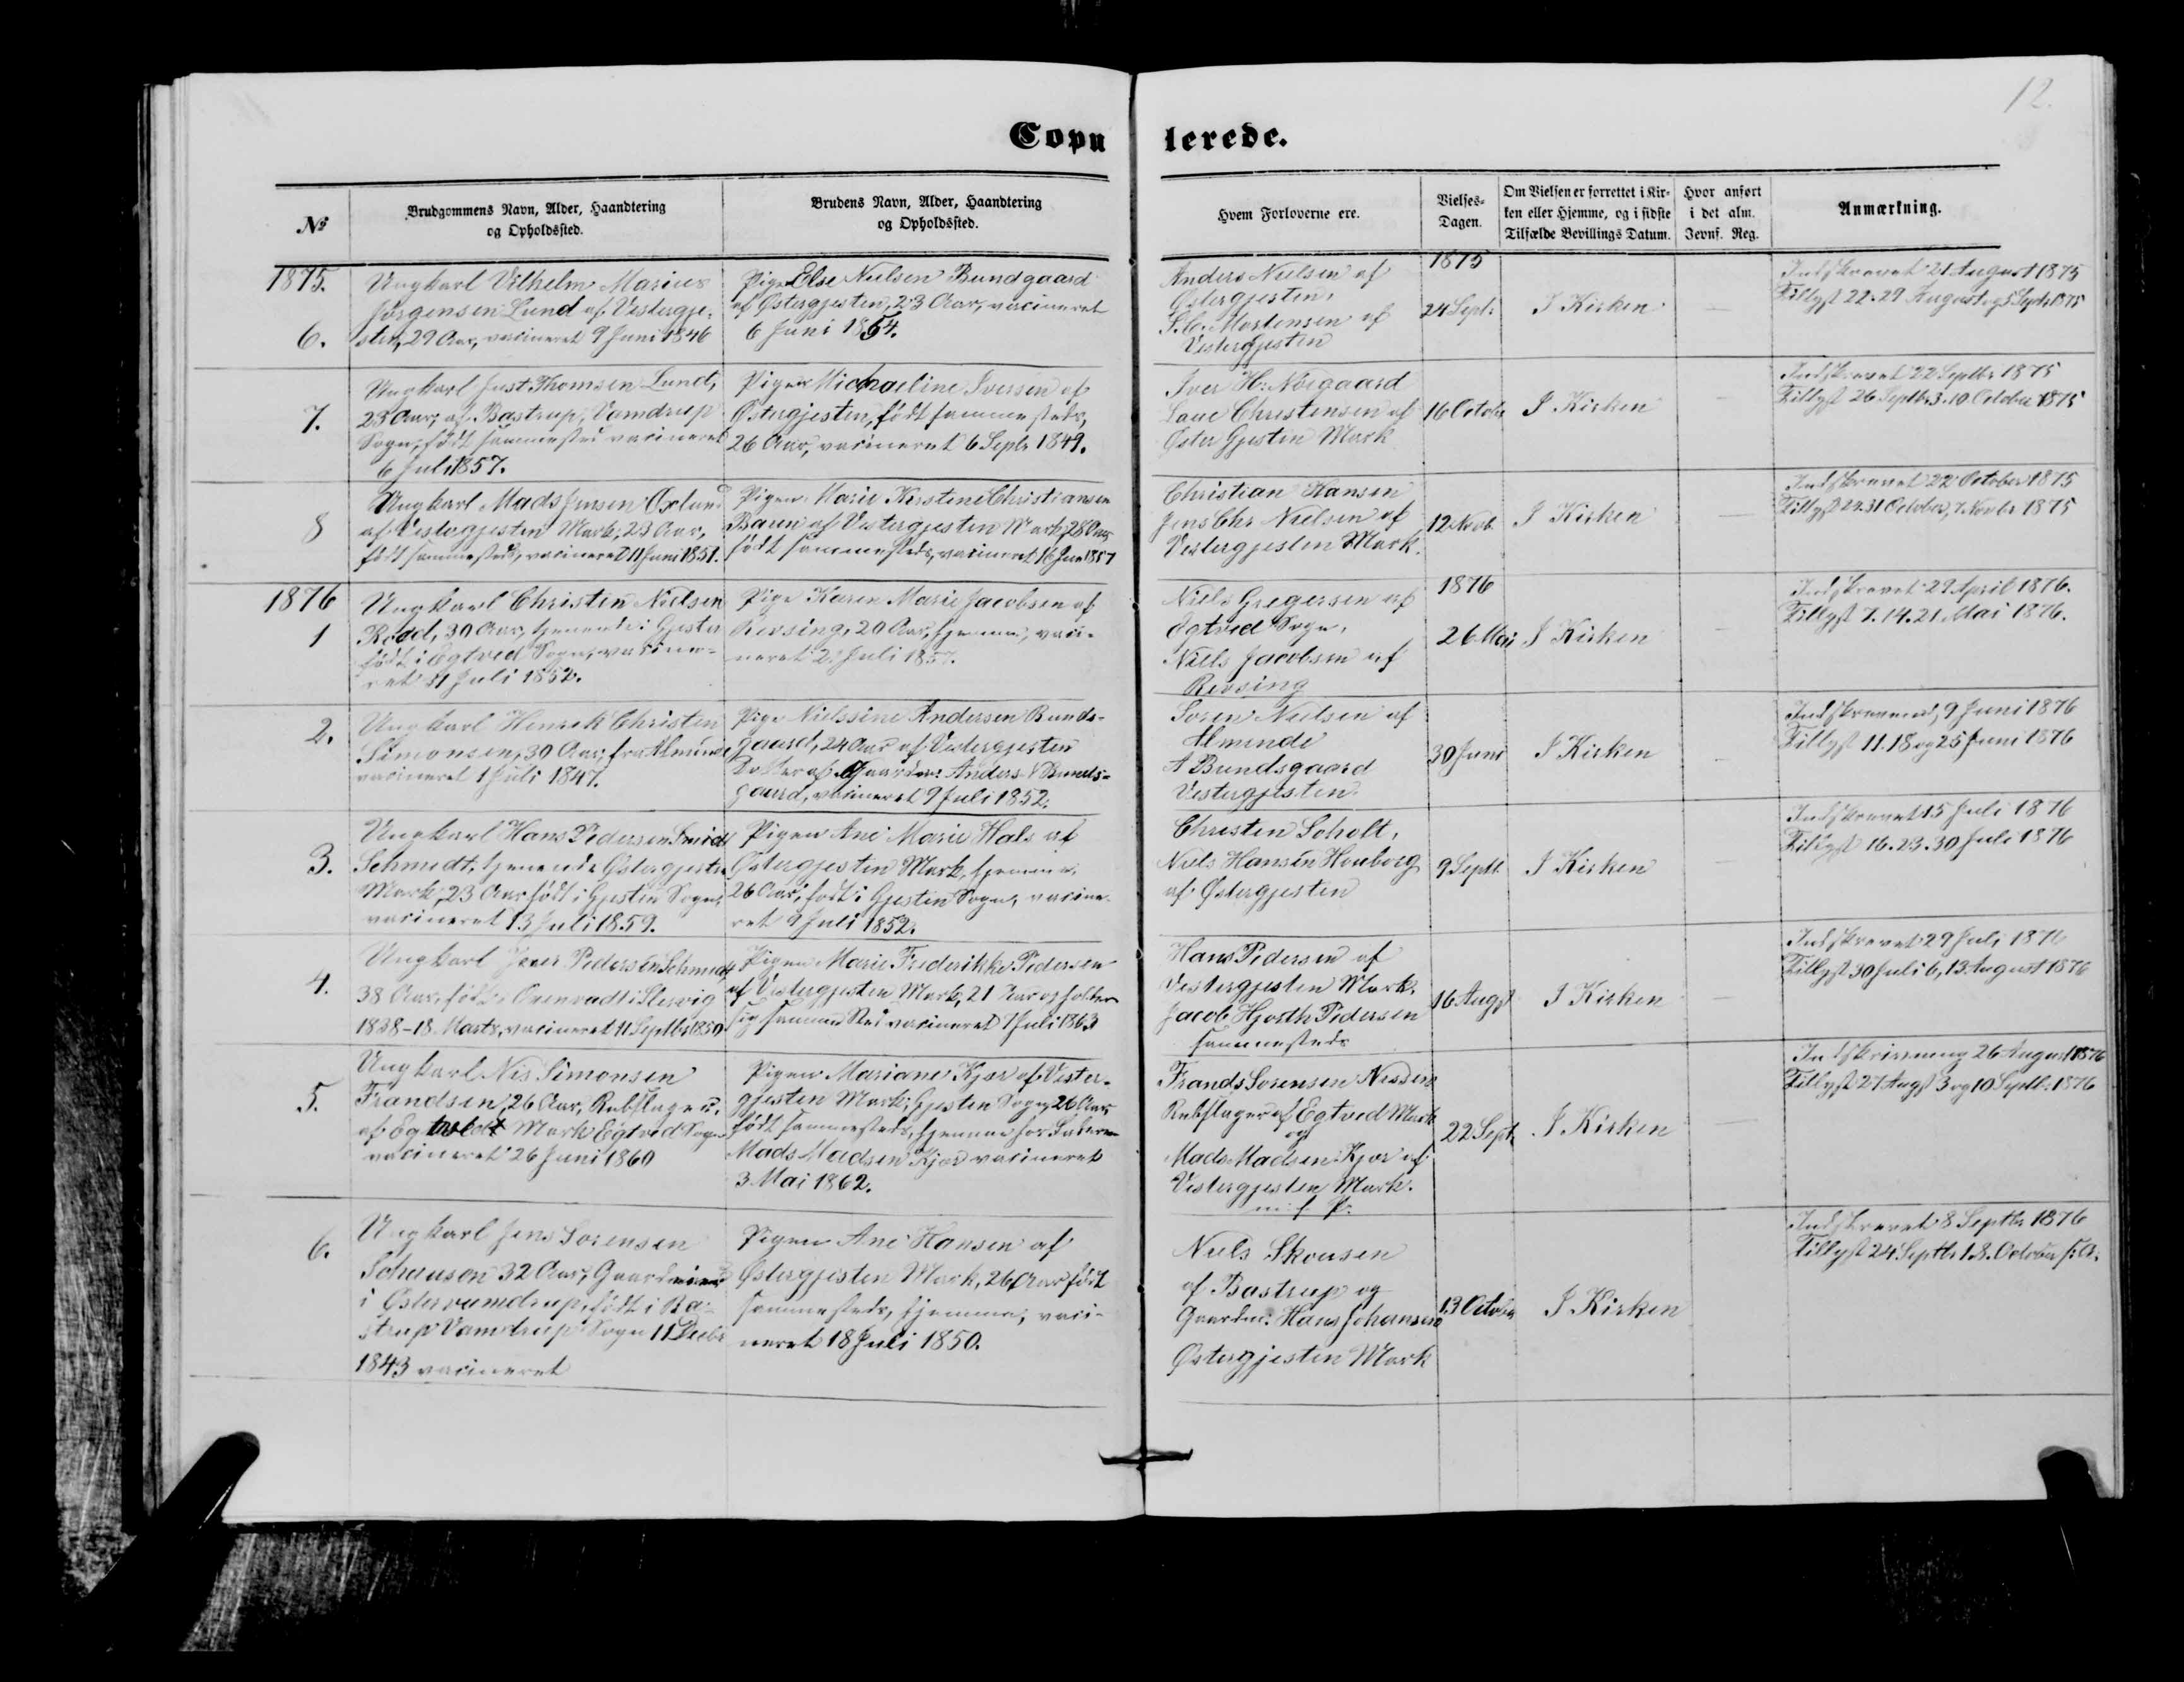 12.
Copulerede.
№
Brudgommens Navn, Alder, Haandtering
og Opholdssted.
Brudens Navn, Alder, Haandtering
og Opholdssted.
Hvem Forloverne ere.
Vielses-
Dagen.
Om Vielsen er forrettet i Kir-
ken eller Hjemme, og i sidste
Tilfælde Bevillings Datum.
Hvor anført
i det alm.
Jevnf. Reg.
Anmærkning.
1875.
6.
Ungkarl Vilhelm Marius
Jørgensen Lund af Vestergje-
sten, 29 Aar, vacineret 9 Juni 1846
Pigen Else Nielsen Bundgaard
af Østergjesten, 23 Aar, vacineret
6 Juni 1854.
Anders Nielsen af
Østergjesten,
S. C. Mortensen af
Vestergjesten
1875
24 Sept:
I Kirken
Indskrevet 21 August 1875
Tillyst 22. 29 August og 5 Septr 1875
7.
Ungkarl Just Thomsen Lund,
23 Aar, af Bastrup, Vamdrup
Sogn, født sammested vacineret
6 Juli 1857.
Pigen Michaeline Iversen af
Østergjesten, født sammesteds,
26 Aar, vacineret 6 Septr 1849.
Iver H: Noegaard
Laue Christensen af
Øster Gjesten Mark
16 Octobr
I Kirken
Indskrevet 22 Septbr 1875
Tillyst 26 Septbr 3. 10 October 1875
8
Ungkarl Mads Jensen Oxlund
af Vestergjesten Mark, 23 Aar,
født sammesteds, vacineret 11 Juni 1851.
Pigen Marie Kirstine Christiansen
af Vestergjesten Mark, 28 Aar,
født sammesteds, vacineret 16 Juni 1857
Christian Hansen
Jens Chr Nielsen af
Vestergjesten Mark.
12 Novb
I Kirken
Indskrevet 22 October 1875
Tillyst 24. 31 October, 7 Novbr 1875
1876
1
Ungkarl Christen Nielsen
30 Aar, tjenende i Gjesten
født i Egtved Sogn, vacine-
ret 11 Juli 1852.
Pige Karen Marie Jacobsen af
Revsing, 20 Aar, hjemme, vaci-
neret 2 Juli 1857.
Niels Gregersen af
Egtved Sogn,
Niels Jacobsen af
Revsing
1876
26 Mai
I Kirken
Indskrevet 29 April 1876.
Tillyst 7. 14. 21. Mai 1876.
2.
Ungkarl Henrik Christen
Simonsen, 30 Aar, fra Almind
vacineret 1 Juli 1847.
Pige Nielssine Andersen Bunds-
gaard, 24 Aar af Vestergjesten
Datter af Gaardm: Anders N Bunds-
gaard, vacineret 9 Juli 1852.
Søren Nielsen af
Alminde
A Bundsgaard
Vestergjesten
30 Juni
I Kirken
9 Juni 1876
Tillyst 11. 18 og 25 Juni 1876
3.
Ungkarl Hans Pedersen
Schmidt, tjenende Østergjesten
Mark, 23 Aar født i Gjesten Sogn,
vacineret 13 Juli 1859.
Pigen Ane Marie Hals af
Østergjesten Mark, hjemme,
26 Aar, født i Gjesten Sogn, vacine-
ret 9 Juli 1852.
Christen Scholt,
Niels Hansen Houborg
af Østergjesten
9 Septb
I Kirken
Indskrevet 15 Juli 1876
Tillyst 16. 23. 30 Juli 1876
4.
Ungkarl Iver Pedersen Schmidt
38 Aar, født i Apenrade i Slesvig
1838-18 Marts, vacineret 11 Septbr 1850
Pigen Marie Frederikke Pedersen
af Vestergjesten Mark, 21 Aar opholder
sig samme Sted vacineret 7 Juli 1863
Hans Pedersen af
Vestergjesten Mark.
Jacob Hjorth Pedersen
sammesteds
16 Augst
I Kirken
Indskrevet 29 Juli 1876
Tillyst 30 Juli 6, 13 August 1876
5.
Ungkarl Nis Simonsen
Frandsen, 26 Aar, Rebslager,
af Mark Egtved Sogn
vacineret 26 Juni 1860
Pigen Mariane Kjær af Vester-
gjesten Mark, Gjesten Sogn, 26 Aar,
født sammesteds, hjemme hos Faderen
Mads Madsen Kjær vacineret
3 Mai 1862.
Frands Sørensen Nissen
Rebslager af Egtved Mark
og
Mads Madsen Kjær af
Vestergjesten Mark.
m. f. P.
22 Sept
I Kirken
26 August 1876
Tillyst 27 Augst 3 og 10 Septb. 1876
6.
Ungkarl Jens Sørensen
Schousen 32 Aar, Gaardmand
i Østervamdrup, født i Ba-
strup Vamdrup Sogn 11 Decbr
1843 vacineret
Pigen Ane Hansen af
Østergjesten Mark, 26 Aar født
sammesteds, hjemme, vaci-
neret 18 Juli 1850.
Niels Skousen
af Bastrup og
Gaardm: Hans Johansen
Østergjesten Mark
13 October
I Kirken
Indskrevet 8 Septbr 1876
Tillyst 24 Septbr 1. 8. October s. A.